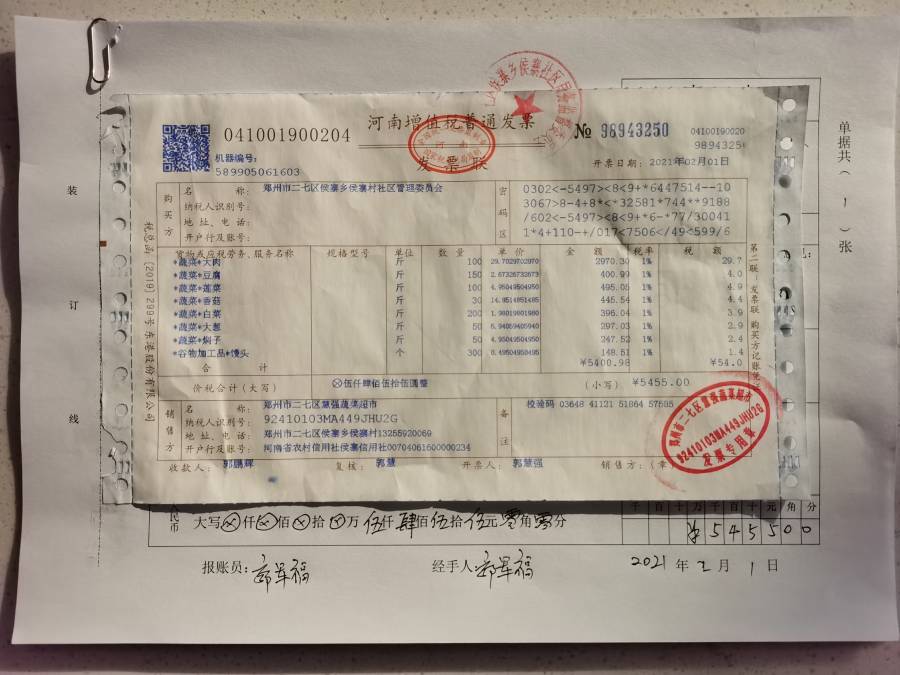 河南增值税普通发票
发票联
041001900204
№ 98943250
04100190020
9894325
机器编号:
589905061603
开票日期: 2021年02月01日
单据共(1)张
装
订
线
税总函〔2019〕299号 东港股份有限公司
购买方
名称: 郑州市二七区侯寨乡侯寨村社区管理委员会
纳税人识别号:
地址、电话:
开户行及账号:
密码区
0302<-5497><8<9+*6447514--10
3067>8-4+8*<*32581*744**9188
/602<-5497><8<9+*6-*77/30041
1*4+110-+/017<7506</49<599/6
货物或应税劳务、服务名称 规格型号 单位 数量 单价 金额 税率 税额
*蔬菜*大肉 斤 100 29.7029702970 2970.30 1% 29.7
*蔬菜*豆腐 斤 150 2.67326732673 400.99 1% 4.0
*蔬菜*莲菜 斤 100 4.95049504950 495.05 1% 4.9
*蔬菜*香菇 斤 30 14.851485148 445.54 1% 4.4
*蔬菜*白菜 斤 200 1.98019801980 396.04 1% 3.9
*蔬菜*大葱 斤 50 5.94059405940 297.03 1% 2.9
*蔬菜*焖子 斤 50 4.95049504950 247.52 1% 2.4
*谷物加工品*馒头 个 300 0.49504950495 148.51 1% 1.4
合计 ¥5400.98 ¥54.0
价税合计(大写) ⊗伍仟肆佰伍拾伍圆整 (小写) ¥5455.00
第二联 发票联 购买方记账凭证
销售方
名称: 郑州市二七区慧强蔬菜超市
纳税人识别号: 92410103MA449JHU2G
地址、电话: 郑州市二七区侯寨乡侯寨村13255920069
开户行及账号: 河南省农村信用社侯寨信用社00704061600000234
备注
校验码 03648 41121 51864 57685
收款人: 郭鹏辉 复核: 郭慧 开票人: 郭慧强 销售方:(章
郑州市二七区慧强蔬菜超市
92410103MA449JHU2G
发票专用章
民币 大写⊗仟⊗佰⊗拾⊗万伍仟肆佰伍拾伍元零角零分
千百十万千百十元角分
¥545500
报账员: 经手人: 2021年2月1日